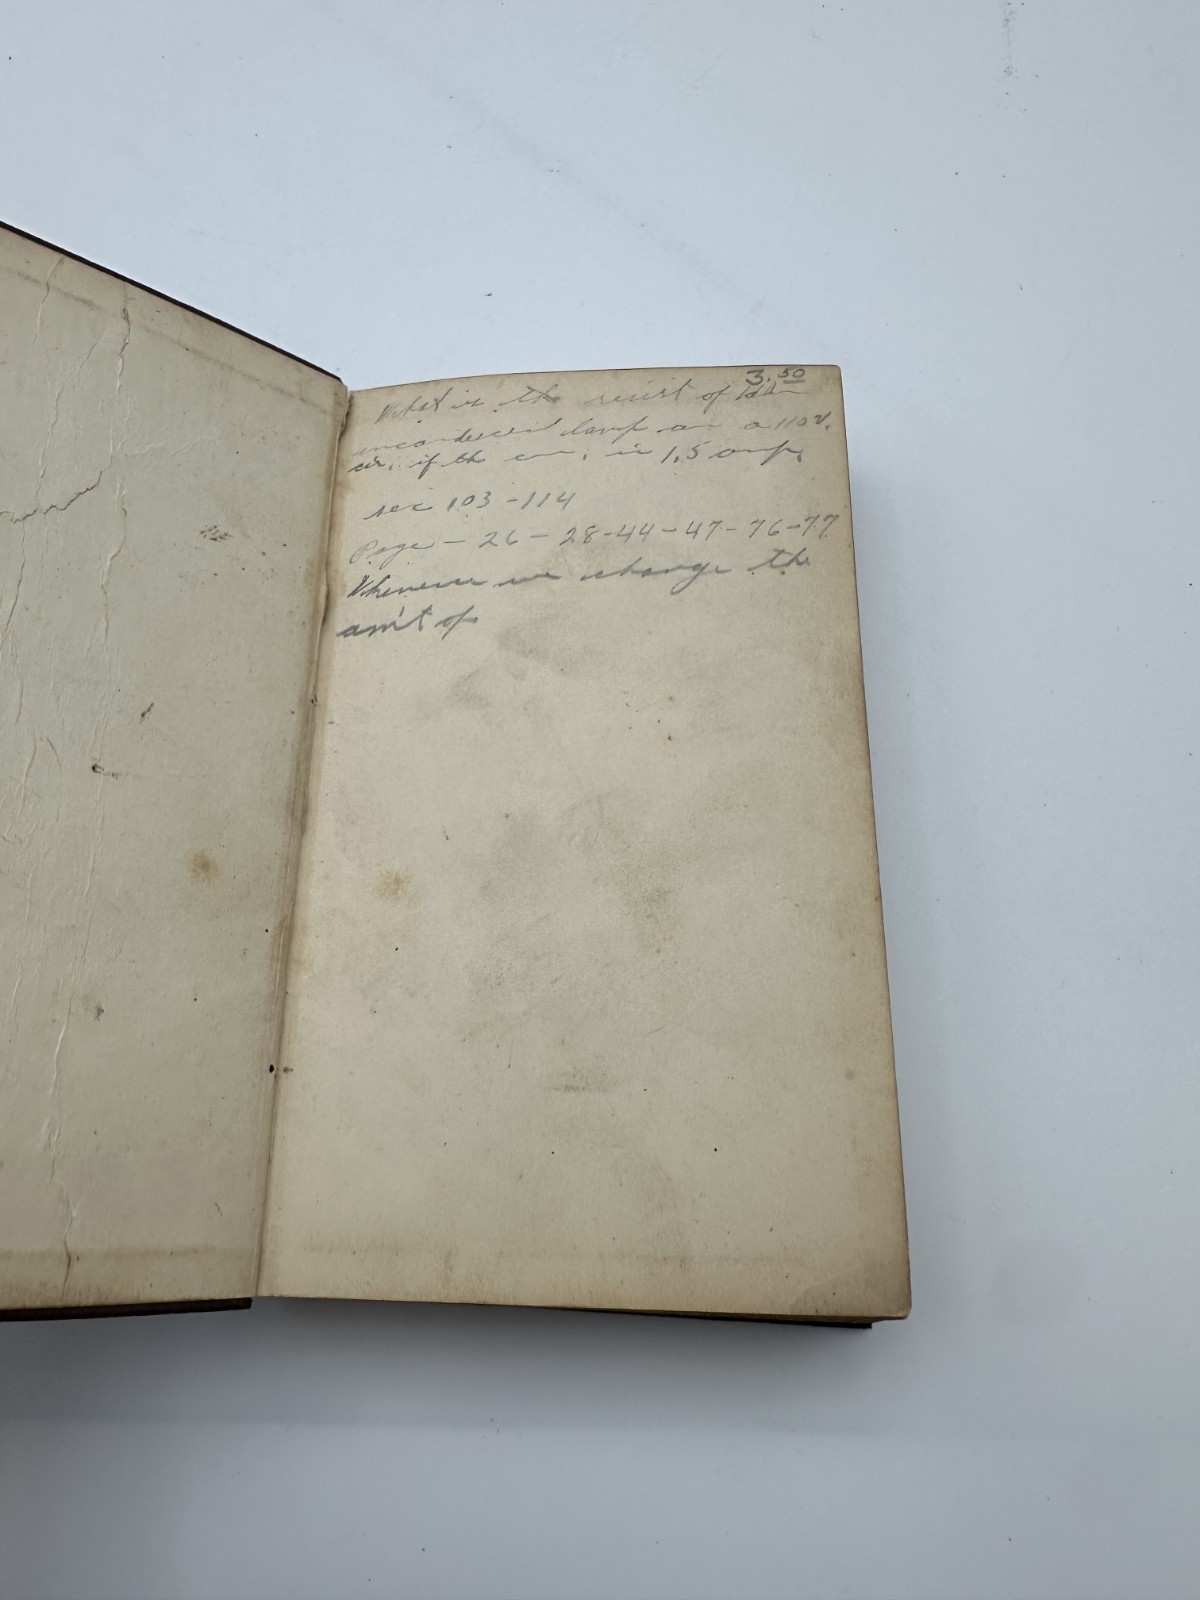 3.50
What is the resist of
incandescent lamp on a 110 v.
cir. if the cur. is 1.5 amp.
sec 103 - 114
Page - 26 - 28 - 44 - 47 - 76 - 77
Whenever we change the
am't of